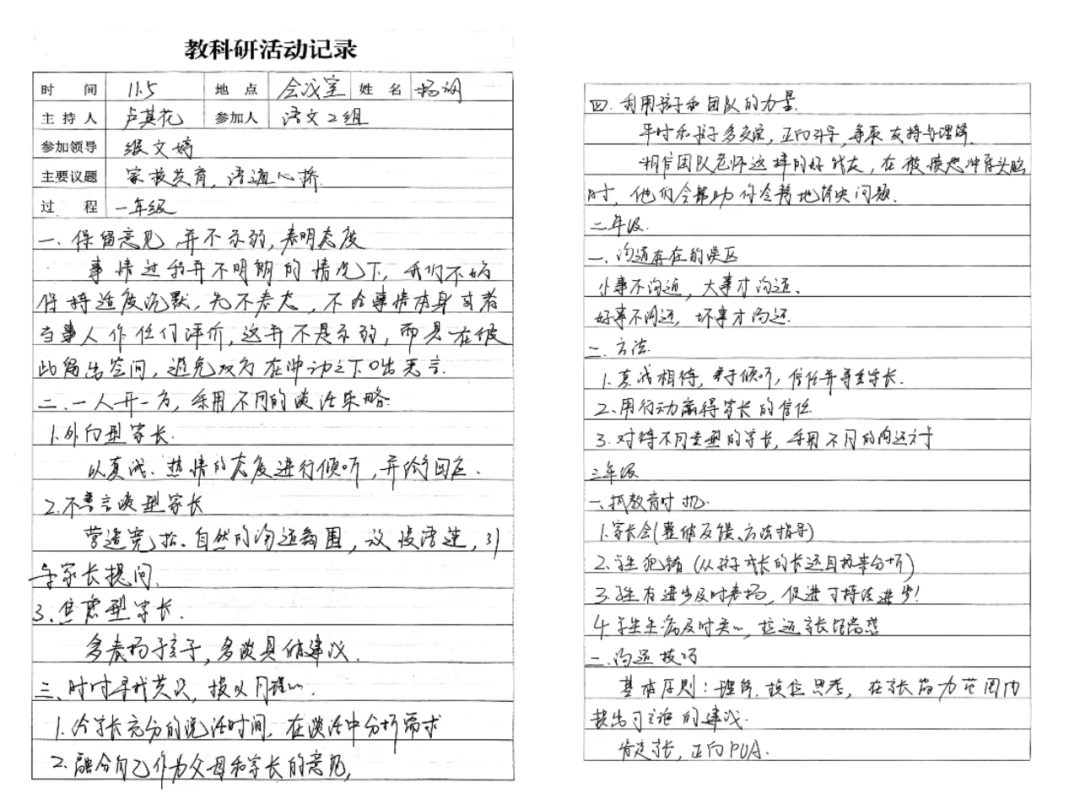 教科研活动记录
时 间 11.5 地 点 会议室 姓 名 杨润
主 持 人 卢其花 参加人 语文2组
参加领导 张文婷
主要议题 家校共育，沟通心桥
过 程 一年级
一、保留意见 并不示弱，表明态度
事情过程并不明朗的情况下，我们不妨
保持适度沉默，先不表态，不给事情本身或者
当事人作任何评价，这并不是示弱，而是在彼
此留出空间，避免双方在冲动之下口出恶言.
二、一人开一方，采用不同的谈话策略
1.外向型家长.
以真诚、热情的态度进行倾听，并给予回应.
2.不善言谈型家长
营造宽松、自然的沟通氛围，放慢语速，引
导家长提问.
3.焦虑型家长.
多表扬孩子，多谈具体建议.
三、时时寻找共识，接纳同理心.
1.给家长充分的说话时间，在谈话中分析需求
2.融合自己作为父母和家长的意见，
四、利用孩子和团队的力量.
平时和孩子多交流，正向引导，争取支持与理解.
相信团队老师这样的好战友，在被愤怒冲昏头脑
时，他们会帮助你冷静地解决问题.
二年级.
一、沟通存在的误区
小事不沟通，大事才沟通、
好事不沟通，坏事才沟通.
二、方法.
1.真诚相待，善于倾听，信任并尊重家长.
2.用行动赢得家长的信任
3.对待不同类型的家长，采用不同的沟通方式
三年级
一、抓教育时机.
1.家长会(整体反馈、方法指导)
2.学生犯错(从孩子成长的长远目标来分析)
3.学生有进步及时表扬，促进可持续进步!
4.学生生病及时关心，拉近家长距离
二、沟通技巧
基本原则：理解，换位思考，在家长能力范围内
提出可实施的建议.
肯定家长，正向PUA.